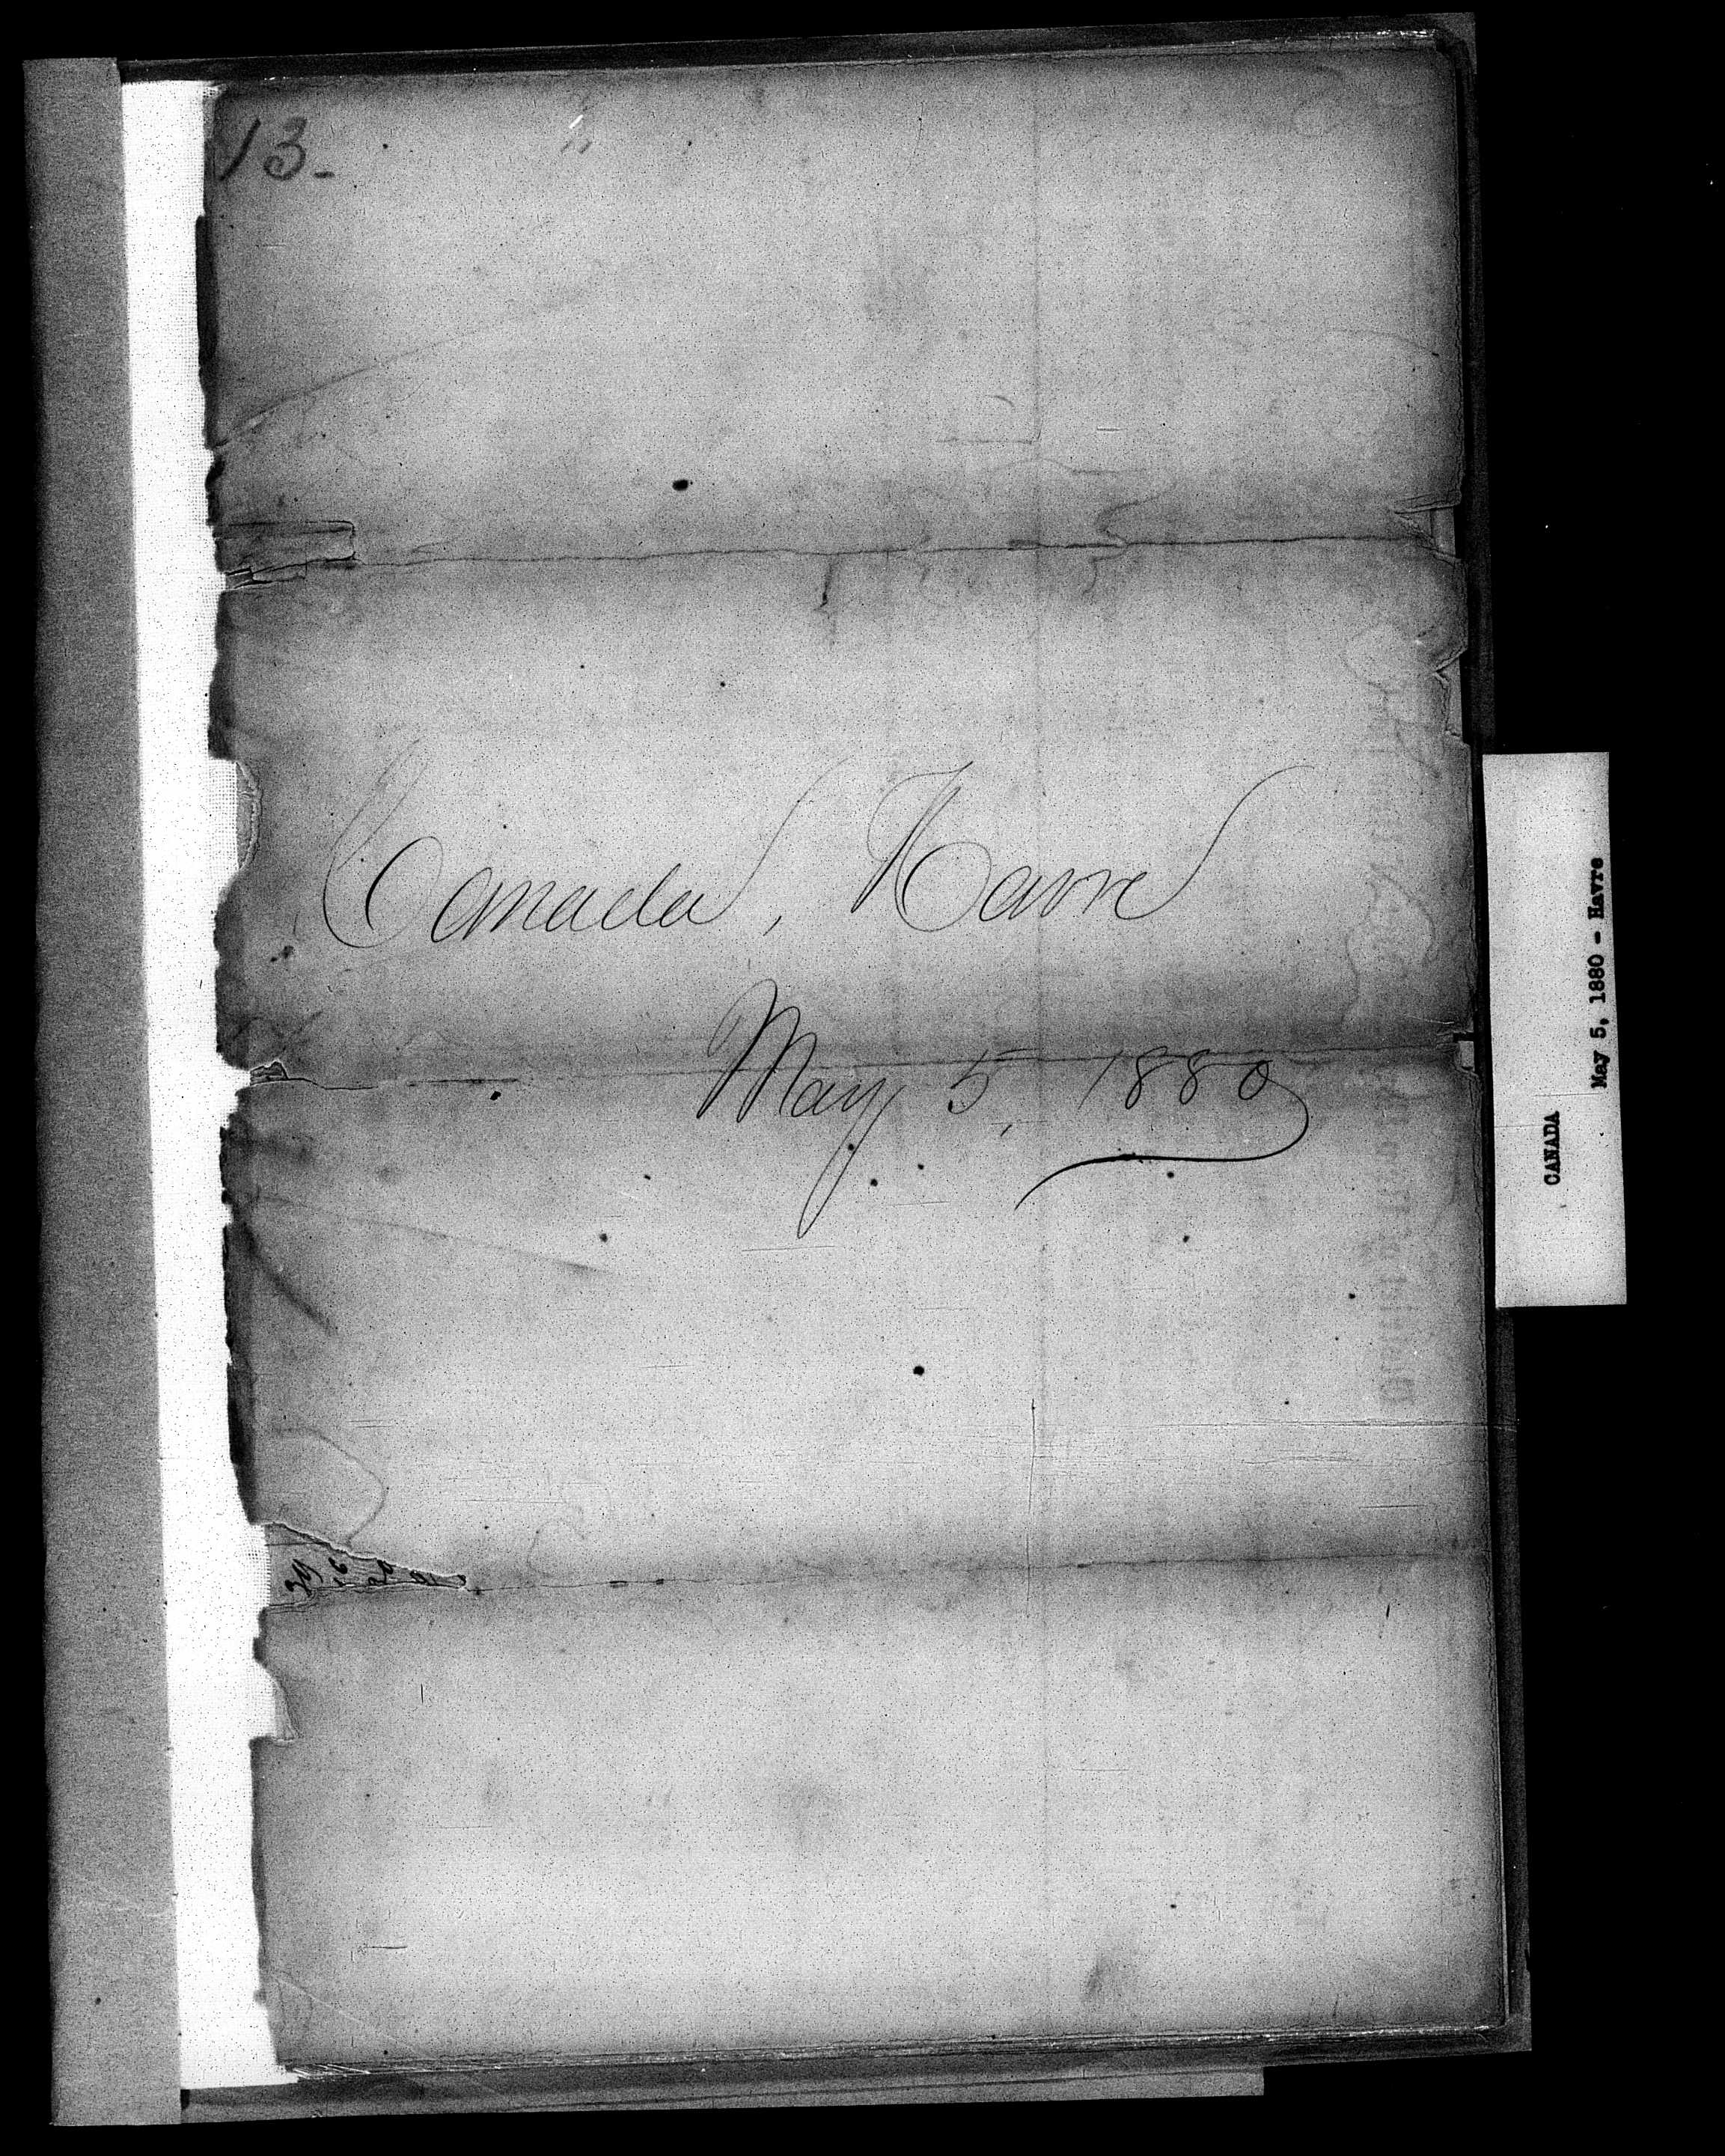 13-
Canada, Havre
May 5, 1880
CANADA
May 5, 1880 - Havre